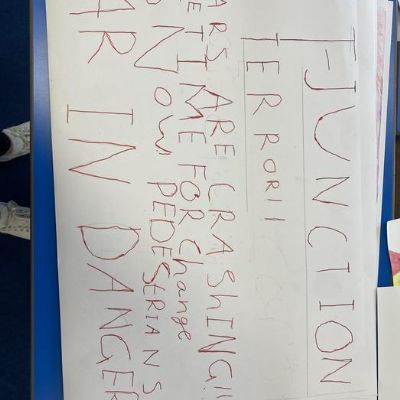 T-JUNCTION
TERROR!!
ARS ARE CRASHING!!
TIME FOR Change
NOW PEDESTRIANS
AR IN DANGER